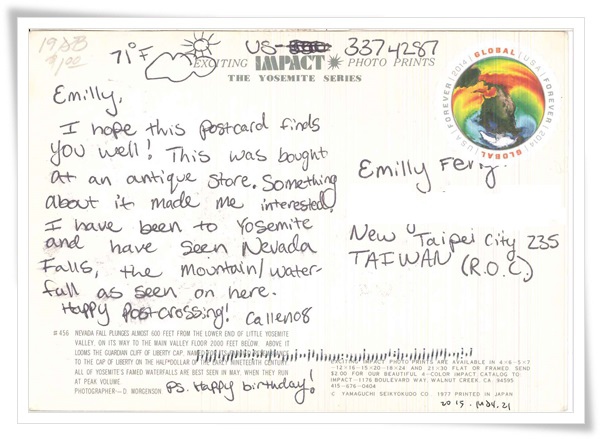 19
$1.00
71°F
US- 3374287
EXCITING IMPACT PHOTO PRINTS
THE YOSEMITE SERIES
FOREVER | 2014 | GLOBAL | USA | FOREVER | 2014 | GLOBAL | USA
Emilly,
I hope this postcard finds
you well! This was bought
at an antique store. Something
about it made me interested.
I have been to Yosemite
and have seen Nevada
Falls, the mountain/water-
fall as seen on here.
Happy Postcrossing! Callen08
Emilly
New Taipei City 235
TAIWAN (R.O.C.)
#456 NEVADA FALL PLUNGES ALMOST 600 FEET FROM THE LOWER END OF LITTLE YOSEMITE
VALLEY, ON ITS WAY TO THE MAIN VALLEY FLOOR 2000 FEET BELOW. ABOVE IT
LOOMS THE GUARDIAN CLIFF OF LIBERTY CAP,
TO THE CAP OF LIBERTY ON THE HALF DOLLAR OF NINETEENTH CENTURY.
ALL OF YOSEMITE'S FAMED WATERFALLS ARE BEST SEEN IN MAY, WHEN THEY RUN
AT PEAK VOLUME.
PHOTOGRAPHER—D. MORGENSON
PS. Happy birthday!
PHOTO PRINTS ARE AVAILABLE IN 4×6-5×7
-12×16-15×20-18×24 AND 21×30 FLAT OR FRAMED SEND
$2.00 FOR OUR BEAUTIFUL 4-COLOR IMPACT CATALOG TO
IMPACT-1176 BOULEVARD WAY, WALNUT CREEK, CA. 94595
415-676-0404
© YAMAGUCHI SEIKYOKUDO CO. 1977 PRINTED IN JAPAN
2015. MAY. 21